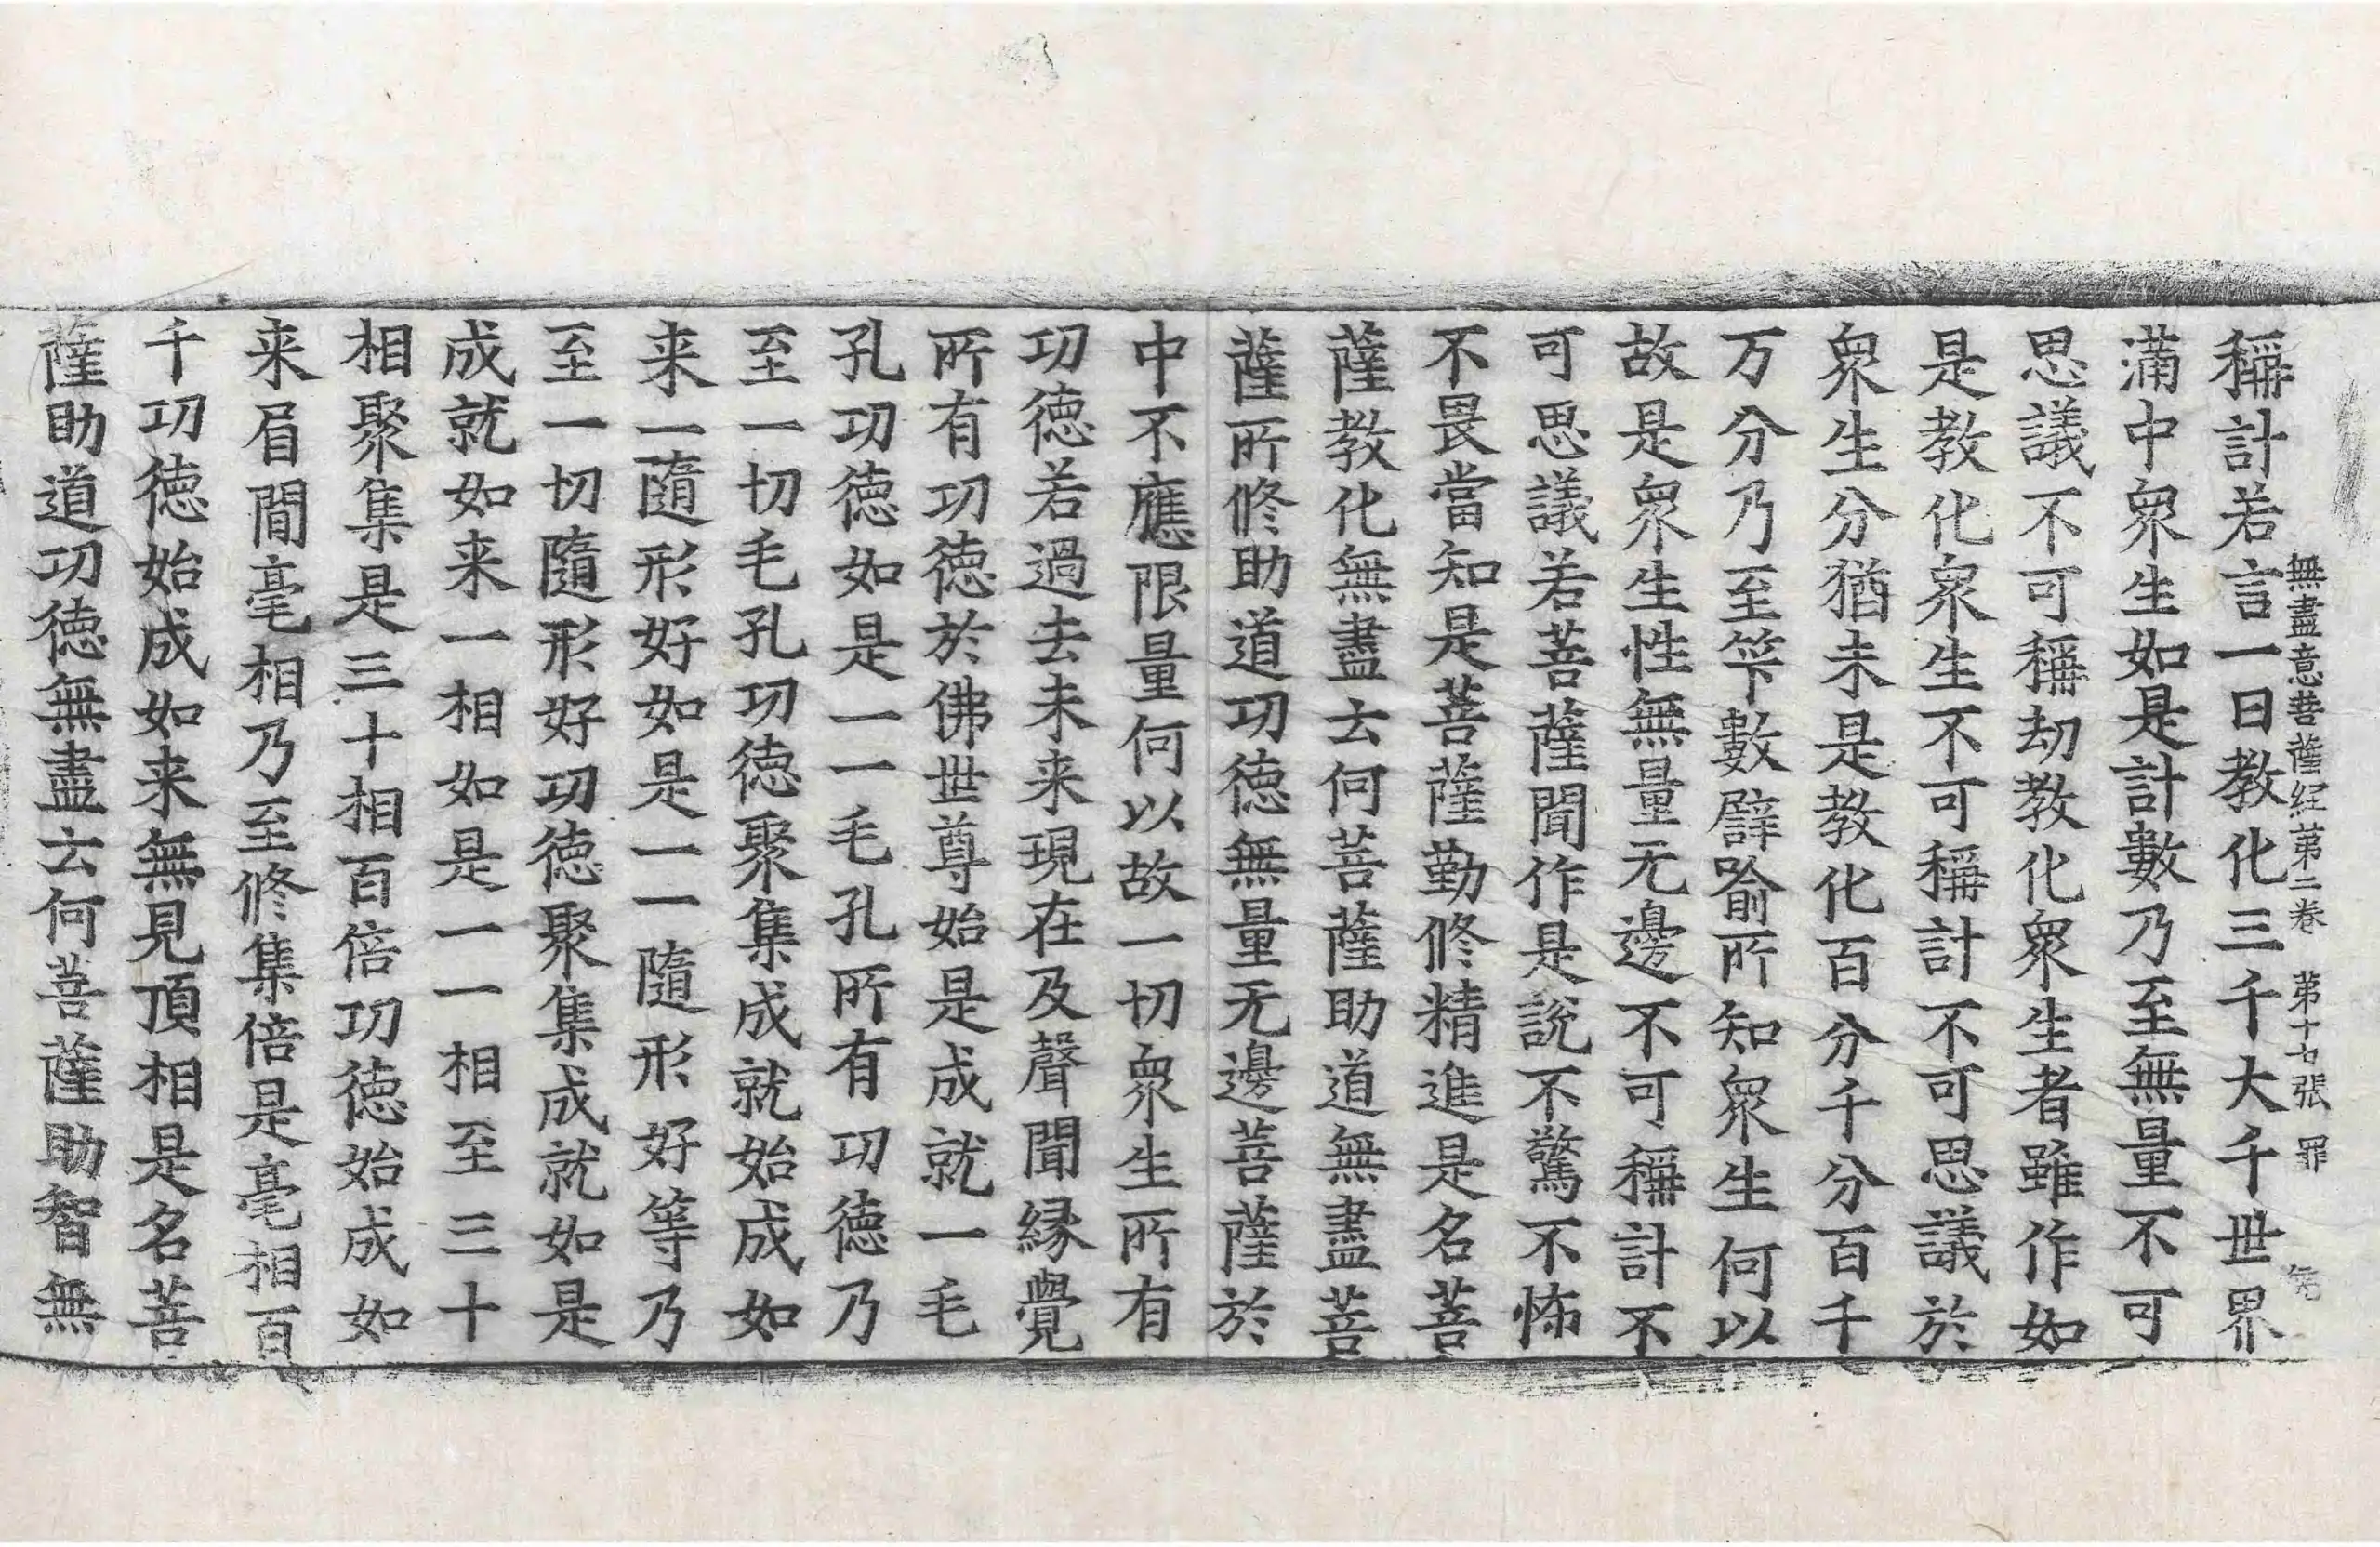 無盡意菩薩經第二卷 第十七張 罪
稱計若言一日教化三千大千世界
滿中衆生如是計數乃至無量不可
思議不可稱劫教化衆生者雖作如
是教化衆生不可稱計不可思議於
衆生分猶未是教化百分千分百千
万分乃至笇數譬喻所知衆生何以
故是衆生性無量无邊不可稱計不
可思議若菩薩聞作是說不驚不怖
不畏當知是菩薩勤修精進是名菩
薩教化無盡云何菩薩助道無盡菩
薩所修助道功德無量无邊菩薩於
中不應限量何以故一切衆生所有
功德若過去未来現在及聲聞緣覺
所有功德於佛世尊始是成就一毛
孔功德如是一一毛孔所有功德乃
至一切毛孔功德聚集成就始成如
来一隨形好如是一一隨形好等乃
至一切隨形好功德聚集成就如是
成就如来一相如是一一相至三十
相聚集是三十相百倍功德始成如
来眉間毫相乃至修集倍是毫相百
千功德始成如来無見頂相是名菩
薩助道功德無盡云何菩薩助智無